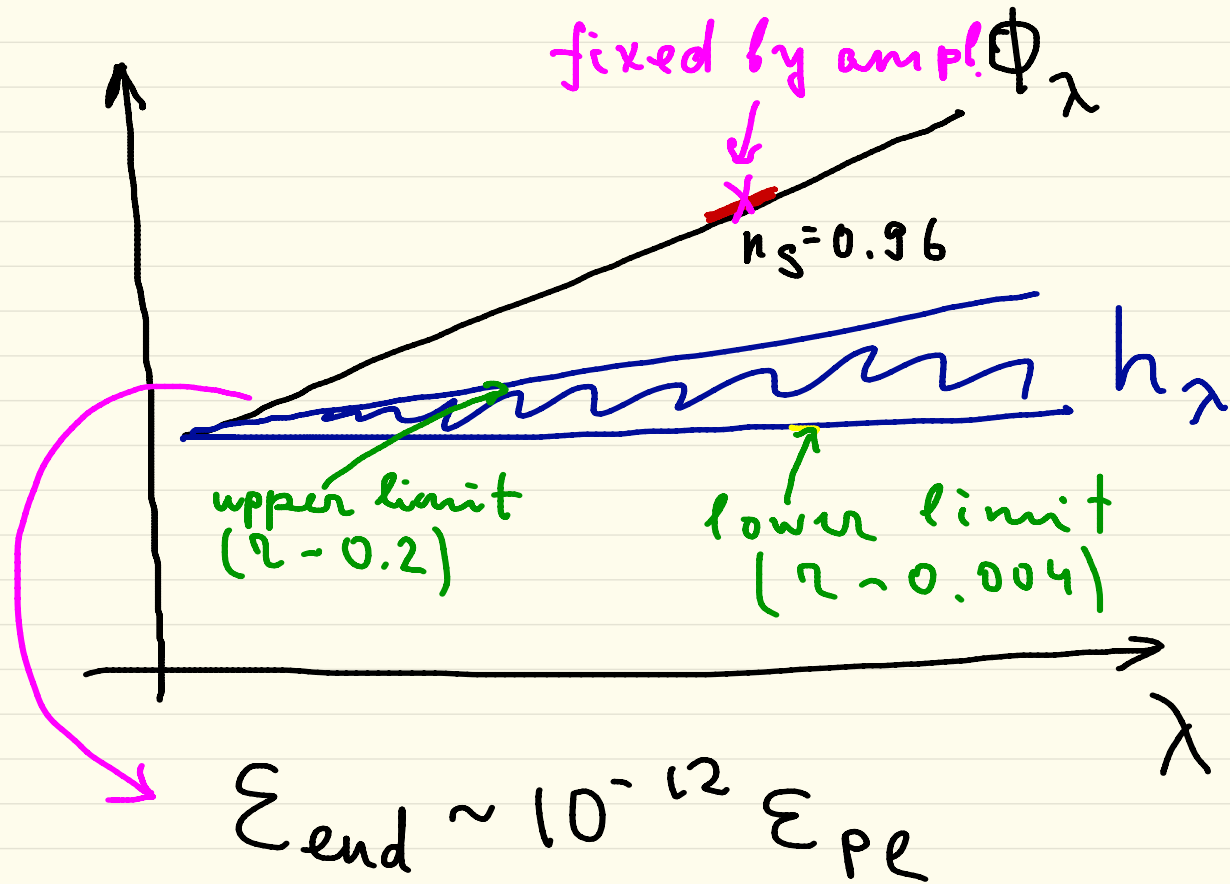 fixed by ampl. Φ_λ
n_s=0.96
h_λ
upper limit
(r ~ 0.2)
lower limit
(r ~ 0.004)
λ
ε_end ~ 10^-12 ε_Pl